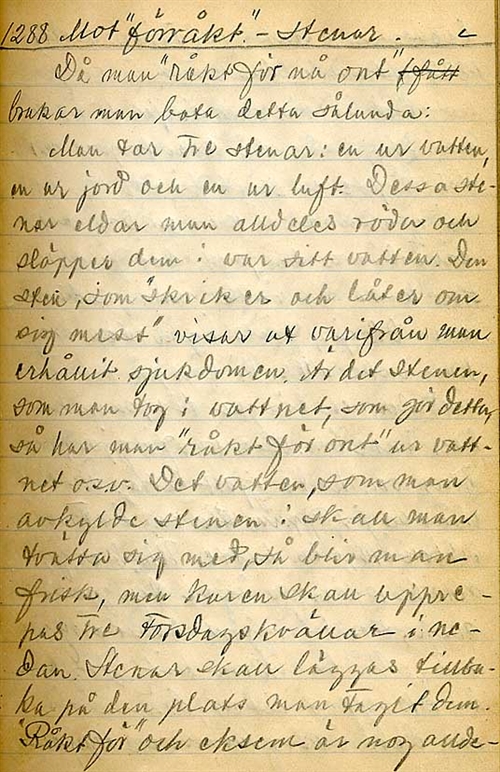 1288 Mot "förråkt". - Stenar.
Då man "råkt för nå ont" (fått
brukar man bota detta sålunda:
Man tar tre stenar: en ur vatten,
en ur jord och en ur luft. Dessa ste-
nar eldar man alldeles röda och
släpper dem i var sitt vatten. Den
sten, som "skriker och låter om
sig mest" visar ut varifrån man
erhållit sjukdomen. Är det stenen,
som man tog i vattnet, som gör detta,
så har man "råkt för ont" ur vatt-
net o.s.v. Det vatten, som man
avkylde stenen i skall man
tvätta sig med, så blir man
frisk, men kuren skall uppre-
pas tre torsdagskvällar i ne-
dan. Stenar skall läggas tillba-
ka på den plats man tagit dem.
"Råkt för" och eksem är nog allde-